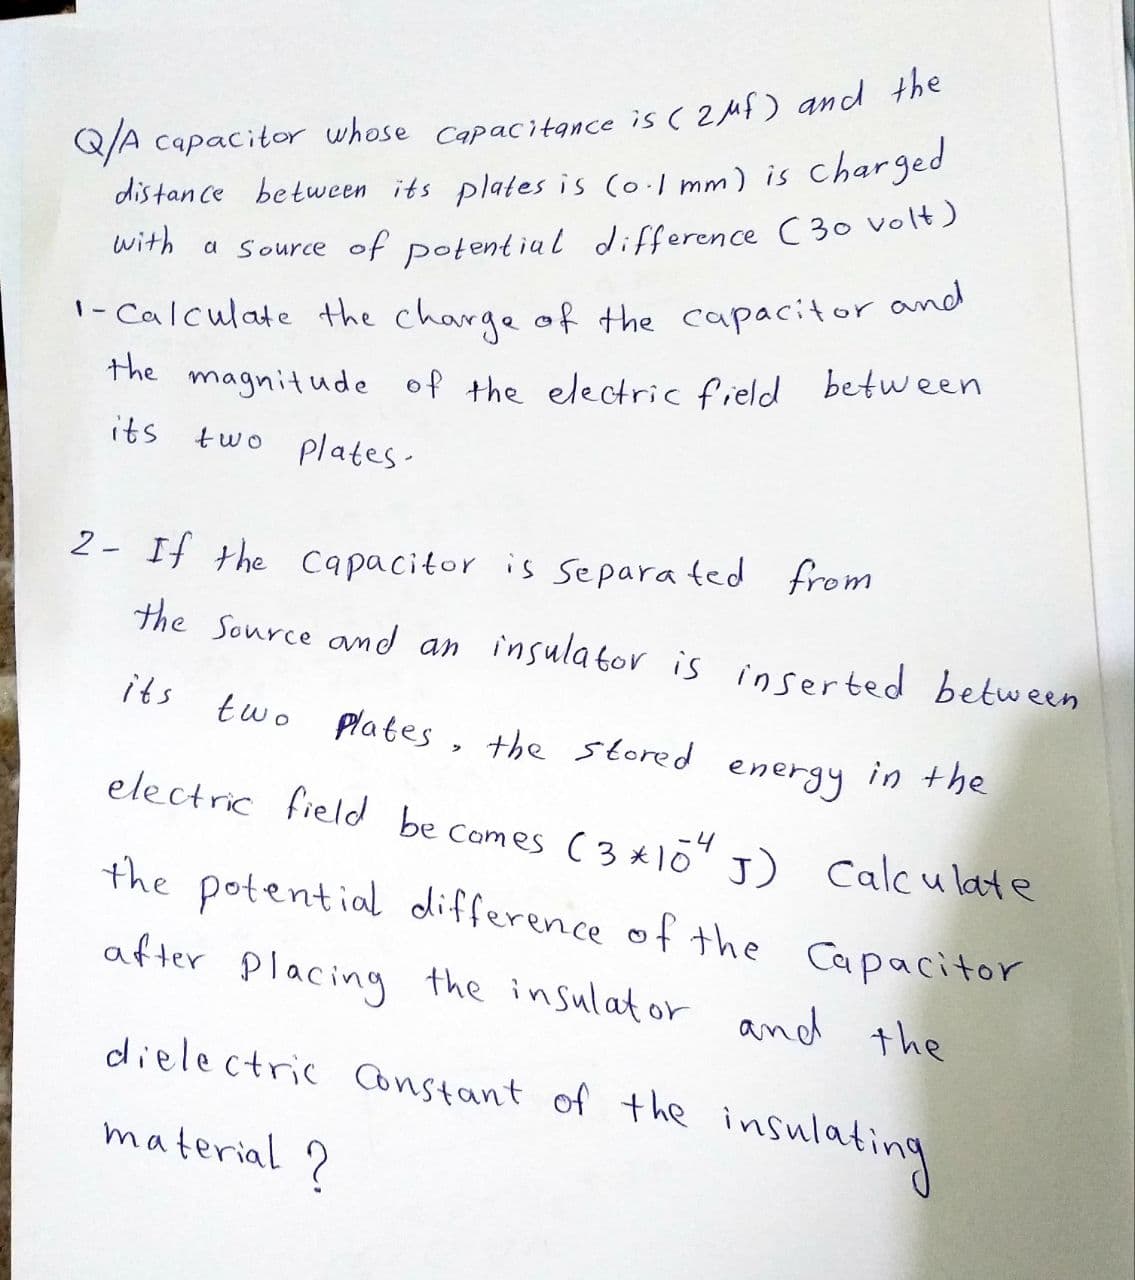 Q/A capacitor whose capacitance is (2 μf) and the
distance between its plates is (0.1 mm) is charged
with a source of potential difference (30 volt)
1- Calculate the charge of the capacitor and
the magnitude of the electric field between
its two plates.
2- If the capacitor is separated from
the source and an insulator is inserted between
its two plates, the stored energy in the
electric field becomes (3 *10⁻⁴ J) Calculate
the potential difference of the Capacitor
after placing the insulator and the
dielectric Constant of the insulating
material ?